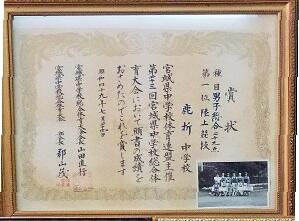 賞状
種目 男子総合 二十九点
第一位 陸上競技
鹿折 中学校
宮城県中学校体育連盟主催
第二十三回宮城県中学校総合体
育大会において頭書の成績を
おさめたのでこれを賞します
昭和四十九年七月二十五日
宮城県中学校体育連盟会長 山田直行
宮城県中学校 郡山茂